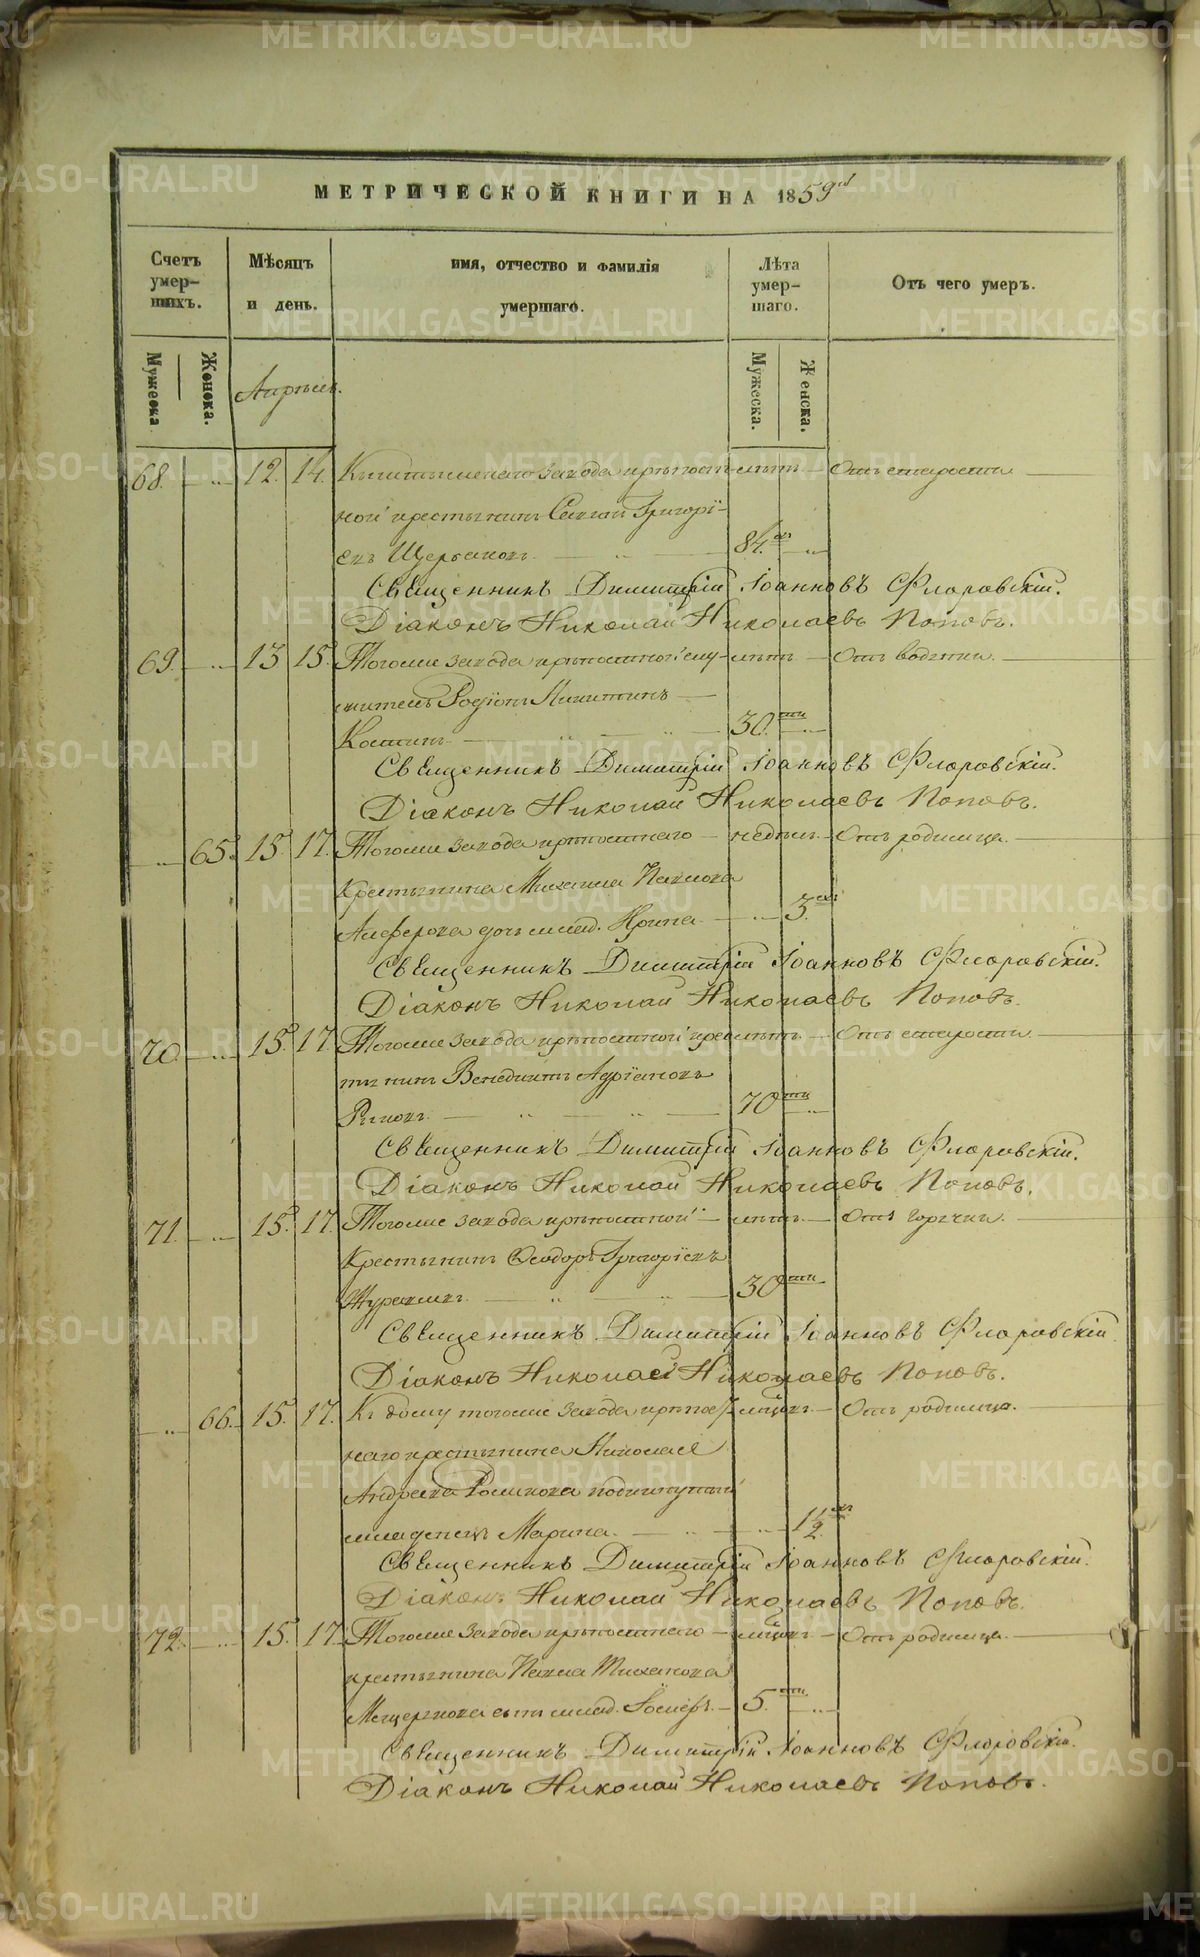 МЕТРИЧЕСКОЙ КНИГИ НА 1859й
Счетъ умершихъ.
Мѣсяцъ и день.
имя, отчество и фамилія умершаго.
Лѣта умершаго.
Отъ чего умеръ.
Мужеска
Женска.
Апрѣль.
Мужеска.
Женска.
68. „ 12. 14. Кыштымскаго завода крѣпост- лѣтъ – Отъ старости
ной крестьянинъ Григорі-
евъ Щербаковъ. „ 84. „
Священникъ Димитрій Іоанновъ Флоровскій.
Діаконъ Николай Николаевъ Поповъ.
69. „ 13 15. Тогоже завода крѣпостной слу- лѣтъ – Отъ водянки.
житель Родіонъ Никитинъ
„ „ 30ти „
Священникъ Димитрій Іоанновъ Флоровскій.
Діаконъ Николай Николаевъ Поповъ.
„ 65. 15. 17. Тогоже завода крѣпостнаго – недѣль – Отъ родимца.
Крестьянина Михаила Павлова
Алферова дочь млад. Ирина. „ 3.
Священникъ Димитрій Іоанновъ Флоровскій.
Діаконъ Николай Николаевъ Поповъ.
70. „ 15. 17. Тогоже завода крѣпостной крес- лѣтъ – Отъ старости.
тьянинъ Венедиктъ Адріановъ
„ „ 70ти „
Священникъ Димитрій Іоанновъ Флоровскій.
Діаконъ Николай Николаевъ Поповъ.
71. „ 15. 17. Тогоже завода крѣпостной – лѣтъ – Отъ горячки.
Крестьянинъ Ѳеодоръ Григоріевъ
„ „ 30ти
Священникъ Димитрій Іоанновъ Флоровскій
Діаконъ Николай Николаевъ Поповъ.
„ 66. 15. 17. Къ дому тогоже завода крѣпост- мѣсяц – Отъ родимца.
наго крестьянина Николая
Андреева подкинутый
младенецъ Марина. „ „ 1 1/2.
Священникъ Димитрій Іоанновъ Флоровскій.
Діаконъ Николай Николаевъ Поповъ.
72. „ 15. 17. Тогоже завода крѣпостнаго – мѣсяц – Отъ родимца.
крестьянина Павла
Мещерякова сынъ млад. Іосифъ. – 5ти „
Священникъ Димитрій Іоанновъ Флоровскій.
Діаконъ Николай Николаевъ Поповъ.
METRIKI.GASO-URAL.RU